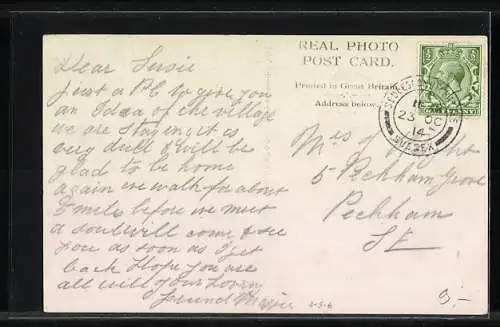 Dear Susie
Just a PC to give you
an Idea of the village
we are staying it is
very dull & will be
glad to be home
again we walk for about
5 miles before we meet
a soul will come & see
you as soon as I get
back Hope you are
all well your loving
friend
REAL PHOTO
POST CARD.
Printed in Great Britain
Address below.
Mrs
5 Peckham Grove
Peckham
SE
23 OC
14
SUSSEX
HALFPENNY
3.-